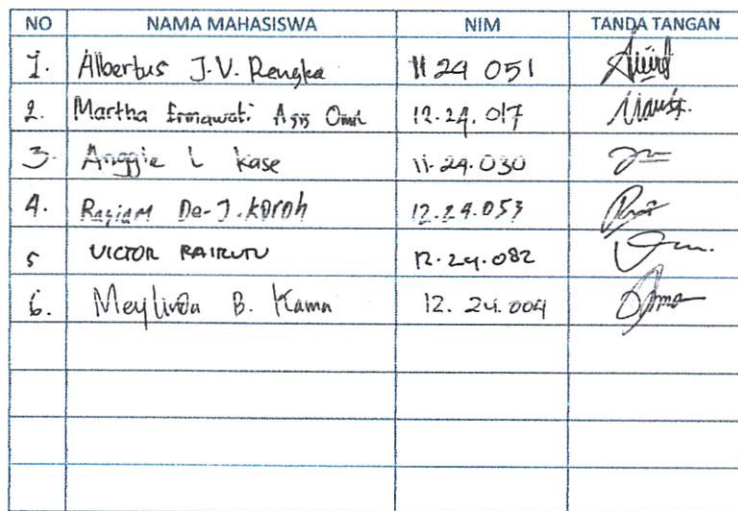 NO NAMA MAHASISWA NIM TANDA TANGAN
1. Albertus J.V. Rengka 11 24 051
2. Martha 12.24.017
3. Anggie L Kase 11.24.030
4. De-J. Koroh 12.24.053
5 VICTOR 12.24.082
6. Meylinda B. Kama 12.24.004